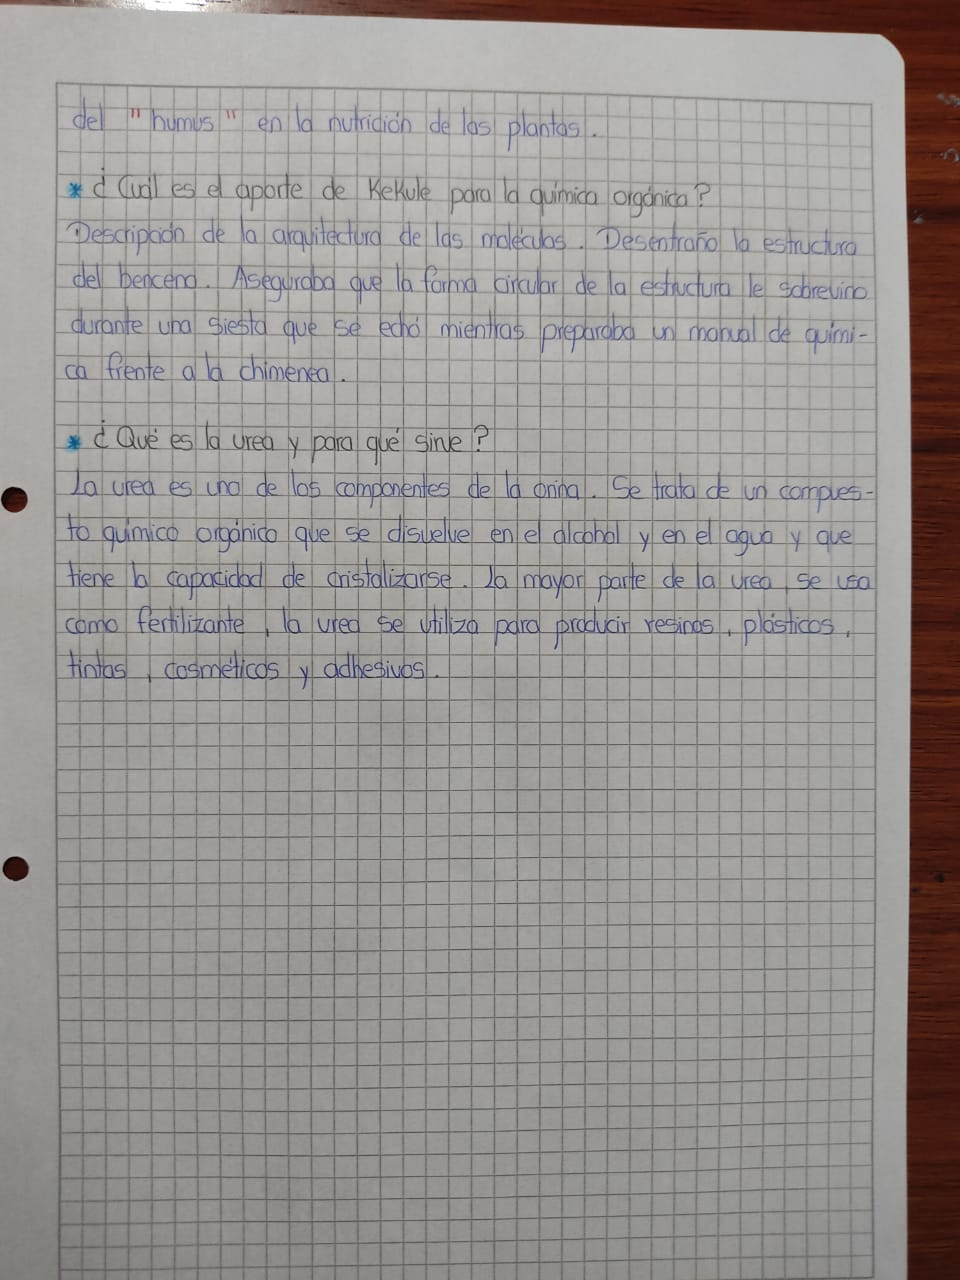 del "humus" en la nutrición de las plantas.
* ¿Cuál es el aporte de Kekule para la química orgánica?
Descripción de la arquitectura de las moléculas. Desentraño la estructura
del benceno. Aseguraba que la forma circular de la estructura le sobrevino
durante una siesta que se echó mientras preparaba un manual de quími-
ca frente a la chimenea.
* ¿Qué es la urea y para qué sirve?
La urea es uno de los componentes de la orina. Se trata de un compues-
to químico orgánico que se disuelve en el alcohol y en el agua y que
tiene la capacidad de cristalizarse. La mayor parte de la urea, se usa
como fertilizante, la urea se utiliza para producir resinas, plásticos,
tintas, cosméticos y adhesivos.